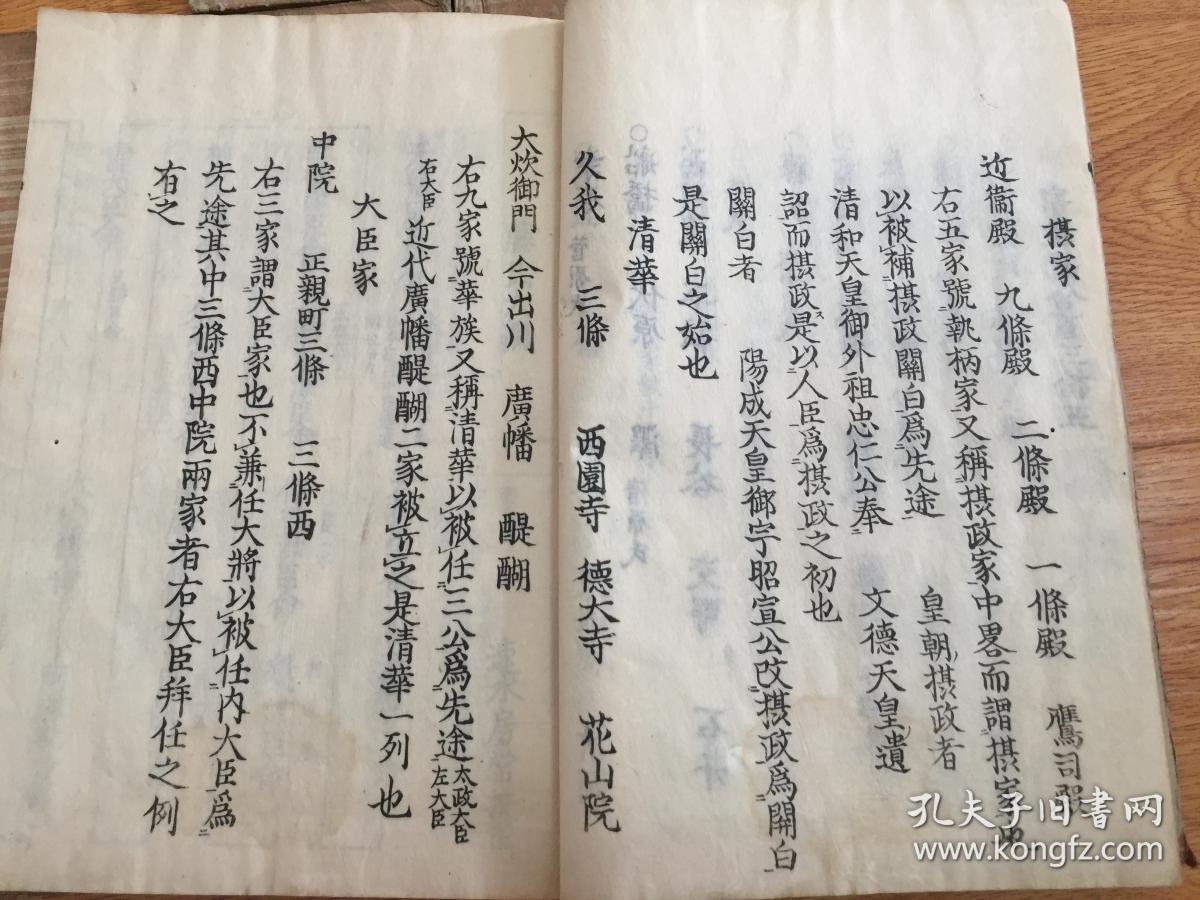 摂家
近衞殿 九條殿 二條殿 一條殿 鷹司殿
右五家號執柄家又稱摂政家中畧而謂摂家也
以被補摂政關白爲先途 皇朝摂政者
清和天皇御外祖忠仁公奉 文德天皇遺
詔而摂政是以人臣爲摂政之初也
關白者 陽成天皇御宇昭宣公改摂政爲関白
是關白之始也
清華
久我 三條 西園寺 德大寺 花山院
大炊御門 今出川 廣幡 醍醐
右九家號華族又稱清華以被任三公爲先途太政大臣左大臣
右大臣 近代廣幡醍醐二家被立之是清華一列也
大臣家
中院 正親町三條 三條西
右三家謂大臣家也不兼任大將以被任内大臣爲
先途其中三條西中院兩家者右大臣拜任之例
有之
孔夫子旧书网
www.kongfz.com